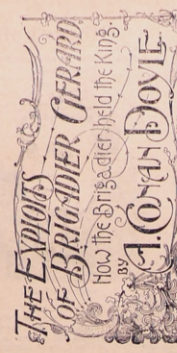 THE EXPLOITS
OF BRIGADIER GERARD
How the Brigadier held the King.
BY
A. CONAN DOYLE